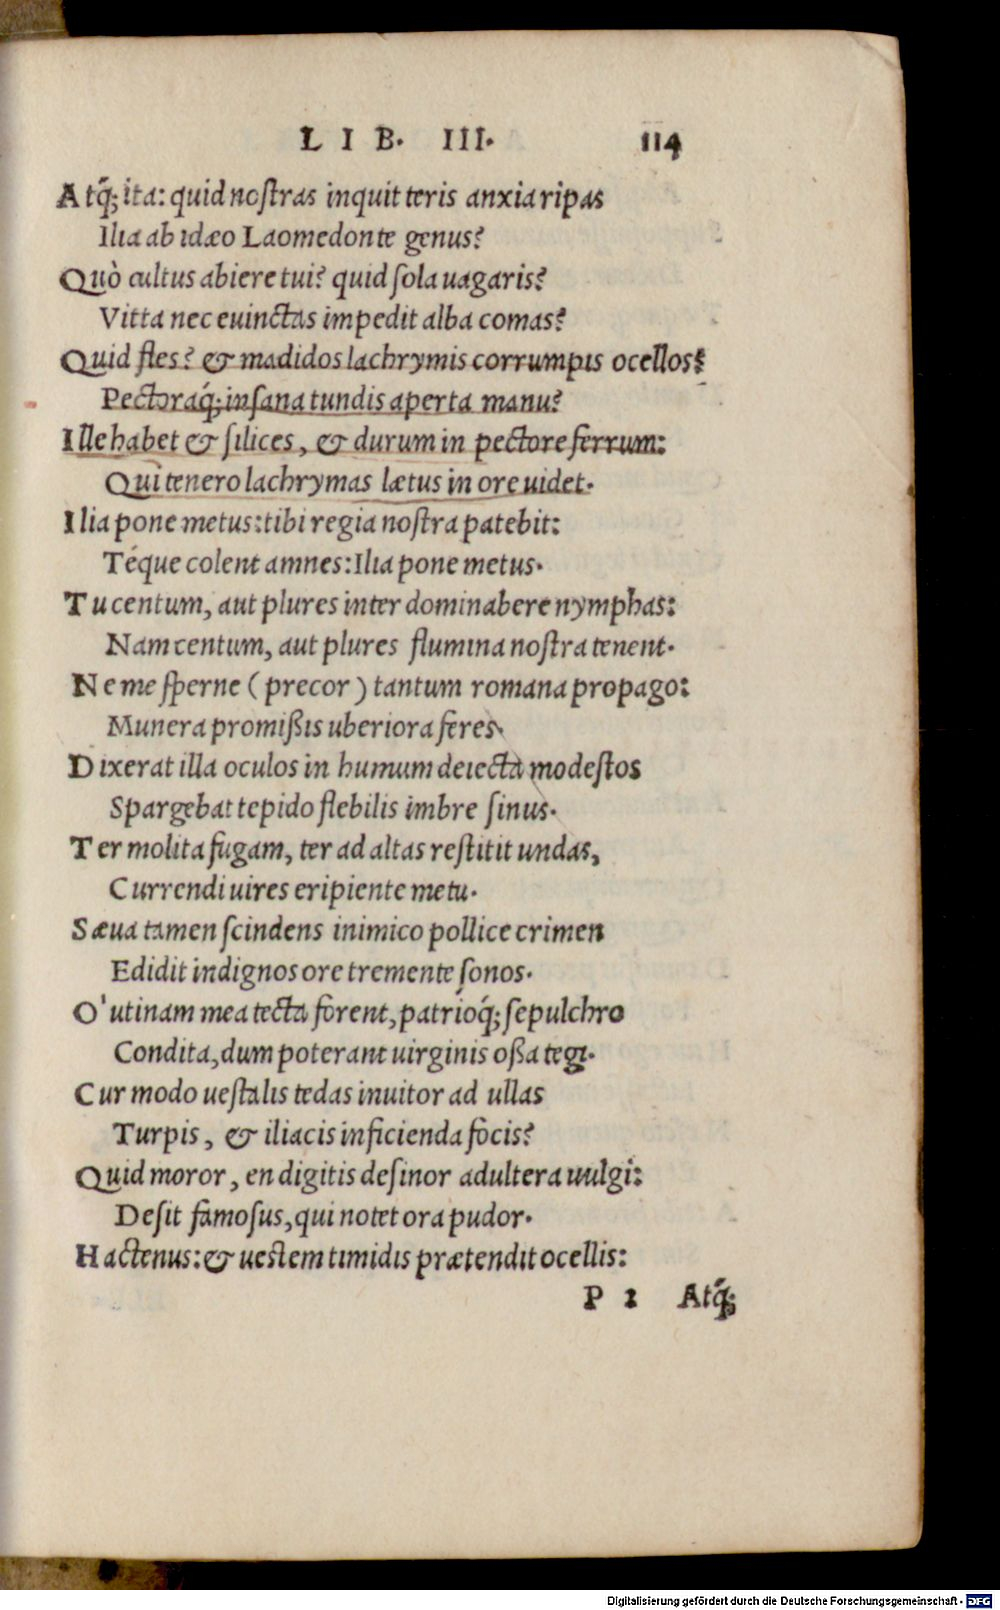 LIB. III. 114
Atq́; ita: quid nostras inquit teris anxia ripas
Ilia ab idæo Laomedonte genus?
Quò cultus abiere tui? quid sola uagaris?
Vitta nec euinctas impedit alba comas?
Quid fles? & madidos lachrymis corrumpis ocellos?
Pectoraq́; insana tundis aperta manu?
Ille habet & silices, & durum in pectore ferrum:
Qui tenero lachrymas lætus in ore uidet.
Ilia pone metus: tibi regia nostra patebit:
Téque colent amnes: Ilia pone metus.
Tu centum, aut plures inter dominabere nymphas:
Nam centum, aut plures flumina nostra tenent.
Ne me sperne (precor) tantum romana propago:
Munera promißis uberiora feres.
Dixerat illa oculos in humum deiecta modestos
Spargebat tepido flebilis imbre sinus.
Ter molita fugam, ter ad altas restitit undas,
Currendi uires eripiente metu.
Sæua tamen scindens inimico pollice crimen
Edidit indignos ore tremente sonos.
O' utinam mea tecta forent, patrioq́; sepulchro
Condita, dum poterant uirginis oßa tegi.
Cur modo uestalis tedas inuitor ad ullas
Turpis, & iliacis inficienda focis?
Quid moror, en digitis desinor adultera uulgi:
Desit famosus, qui notet ora pudor.
Hactenus: & uestem timidis prætendit ocellis:
P 2 Atq́;
Digitalisierung gefördert durch die Deutsche Forschungsgemeinschaft - DFG